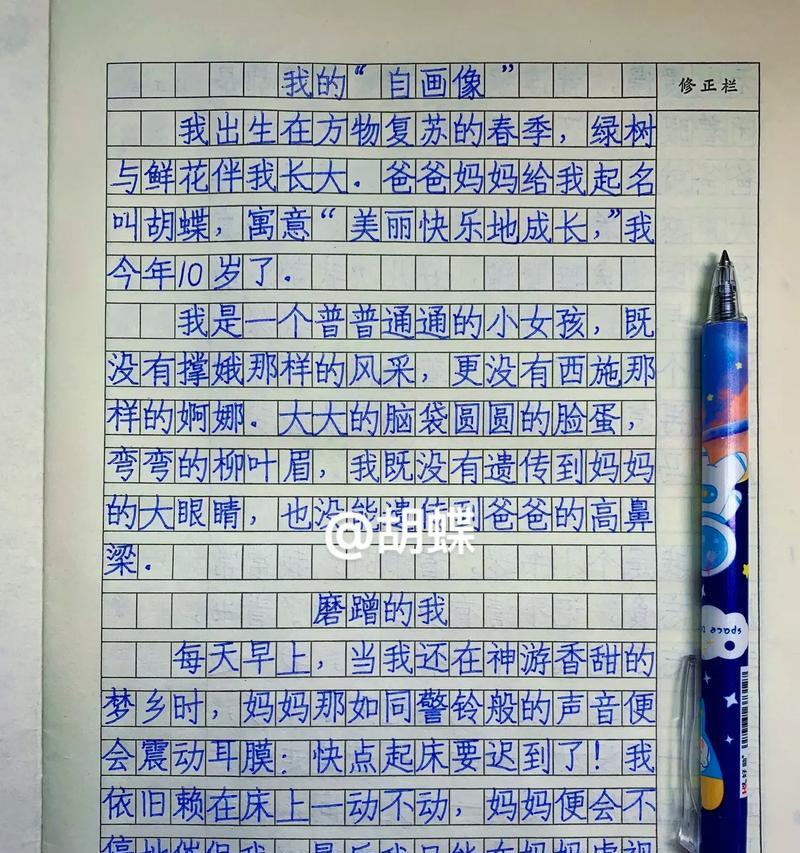 我的“自画像”
修正栏
我出生在方物复苏的春季，绿树
与鲜花伴我长大．爸爸妈妈给我起名
叫胡蝶，寓意“美丽快乐地成长，”我
今年10岁了．
我是一个普普通通的小女孩，既
没有撑娥那样的风采，更没有西施那
样的婀娜．大大的脑袋圆圆的脸蛋，
弯弯的柳叶眉，我既没有遗传到妈妈
的大眼睛，也没能遗传到爸爸的高鼻
梁．
@胡蝶
磨蹭的我
每天早上，当我还在神游香甜的
梦乡时，妈妈那如同警铃般的声音便
会震动耳膜：快点起床要迟到了！我
依旧赖在床上一动不动，妈妈便会不
space